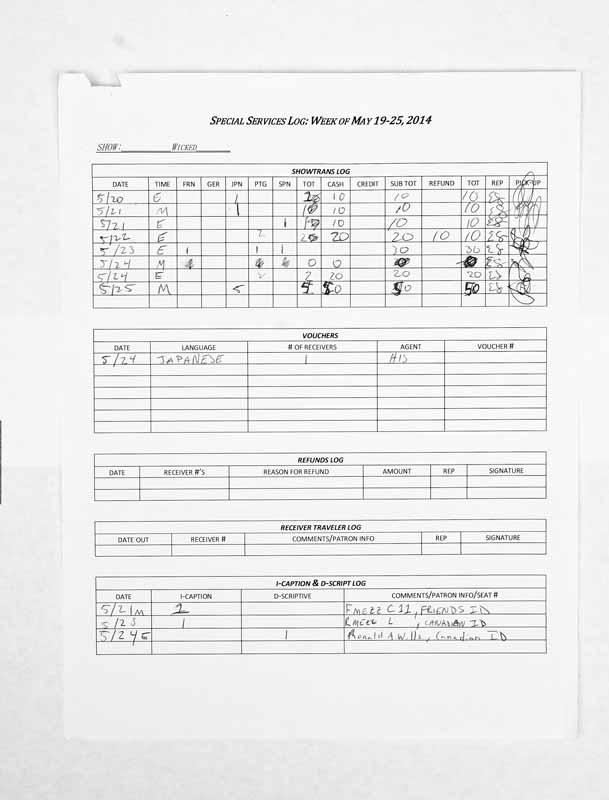 SPECIAL SERVICES LOG: WEEK OF MAY 19-25, 2014
SHOW: WICKED
SHOWTRANS LOG
DATE TIME FRN GER JPN PTG SPN TOT CASH CREDIT SUB TOT REFUND TOT REP PICK-UP
5/20 E 1 10 10 10 ES
5/21 M 1 10 10 10 ES
5/21 E 1 10 10 10 ES
5/22 E 2 20 20 10 10 ES
5/23 E 1 1 1 30 30 ES
5/24 M 0 0 ES
5/24 E 2 2 20 20 20 ES
5/25 M 5 5 50 50 50 ES
VOUCHERS
DATE LANGUAGE # OF RECEIVERS AGENT VOUCHER #
5/24 JAPANESE 1 HIS
REFUNDS LOG
DATE RECEIVER #'S REASON FOR REFUND AMOUNT REP SIGNATURE
RECEIVER TRAVELER LOG
DATE OUT RECEIVER # COMMENTS/PATRON INFO REP SIGNATURE
I-CAPTION & D-SCRIPT LOG
DATE I-CAPTION D-SCRIPTIVE COMMENTS/PATRON INFO/SEAT #
5/21M 1 FMEZZ C11, FRIENDS ID
5/23 1 RMEZZ L , CANADIAN ID
5/24E 1 Ronald A Wills, Canadian ID